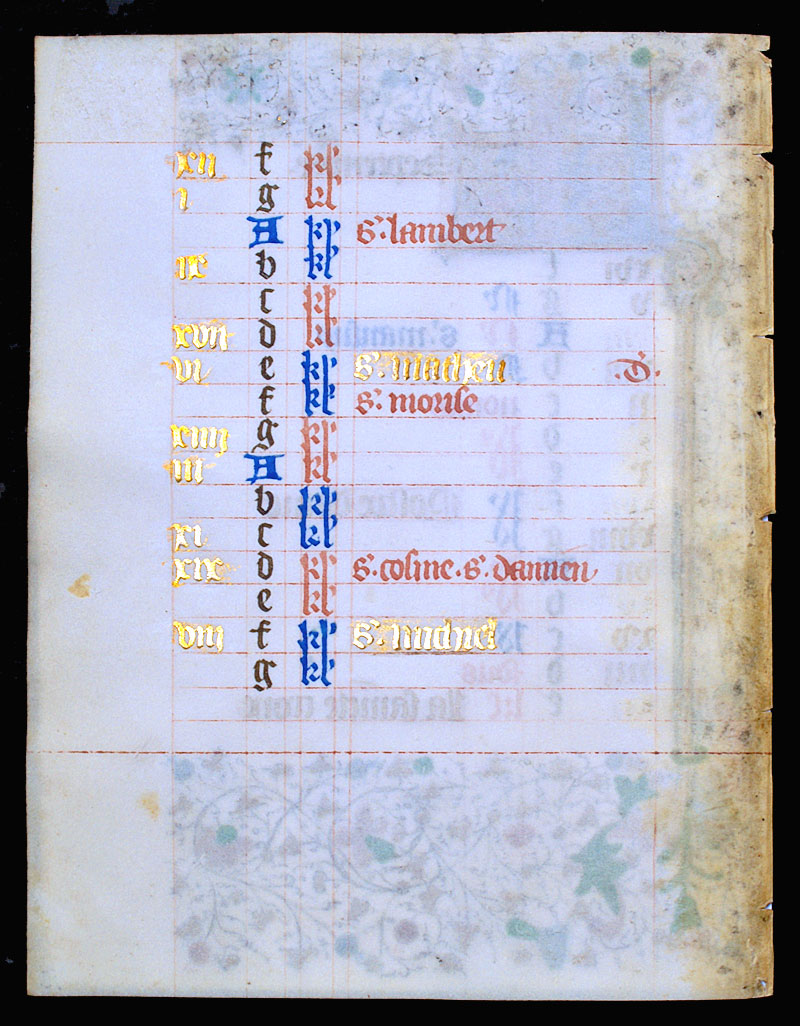 xii f kl
i g kl
A kl s. lambert
ix b kl
c kl
xvii d kl
vi e kl S. matheu .D.
f kl s. morise
xiiij g kl
iii A kl
b kl
xi c kl
xix d kl s. cosme. s. damien
e kl
viij f kl S. michel
g kl